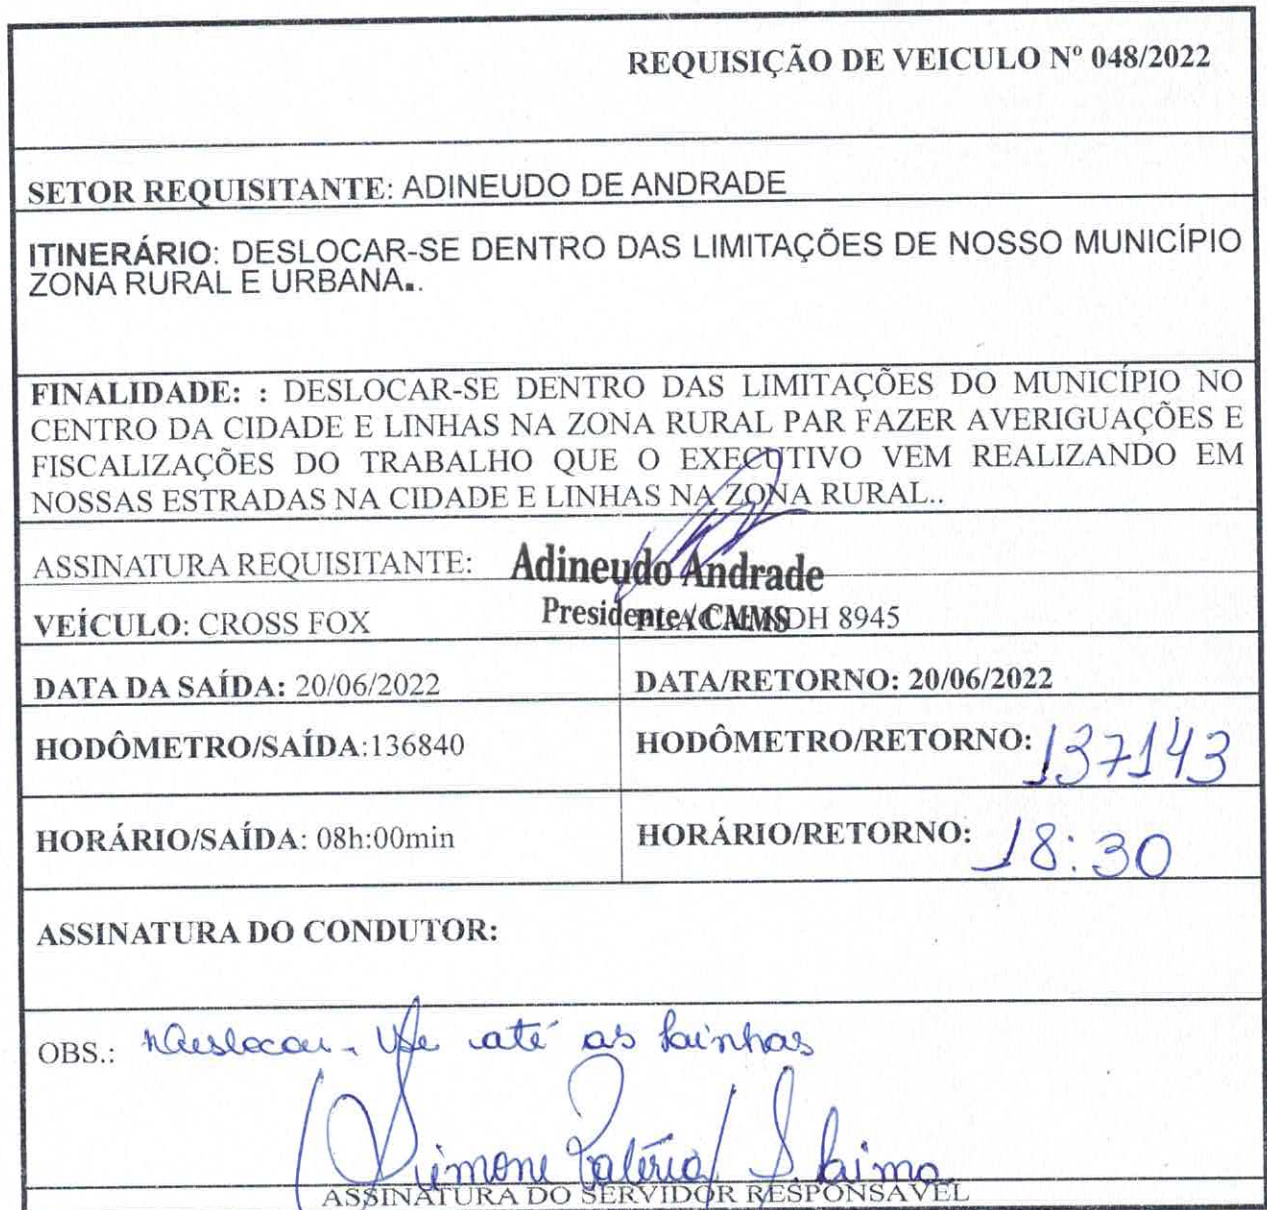 REQUISIÇÃO DE VEICULO Nº 048/2022
SETOR REQUISITANTE: ADINEUDO DE ANDRADE
ITINERÁRIO: DESLOCAR-SE DENTRO DAS LIMITAÇÕES DE NOSSO MUNICÍPIO
ZONA RURAL E URBANA..
FINALIDADE: : DESLOCAR-SE DENTRO DAS LIMITAÇÕES DO MUNICÍPIO NO
CENTRO DA CIDADE E LINHAS NA ZONA RURAL PAR FAZER AVERIGUAÇÕES E
FISCALIZAÇÕES DO TRABALHO QUE O EXECUTIVO VEM REALIZANDO EM
NOSSAS ESTRADAS NA CIDADE E LINHAS NA ZONA RURAL..
ASSINATURA REQUISITANTE: Adineudo Andrade
Presidente / CMMS
VEÍCULO: CROSS FOX 8945
DATA DA SAÍDA: 20/06/2022 DATA/RETORNO: 20/06/2022
HODÔMETRO/SAÍDA:136840 HODÔMETRO/RETORNO: 137143
HORÁRIO/SAÍDA: 08h:00min HORÁRIO/RETORNO: 18:30
ASSINATURA DO CONDUTOR:
OBS.: até as
Simone
ASSINATURA DO SERVIDOR RESPONSAVEL